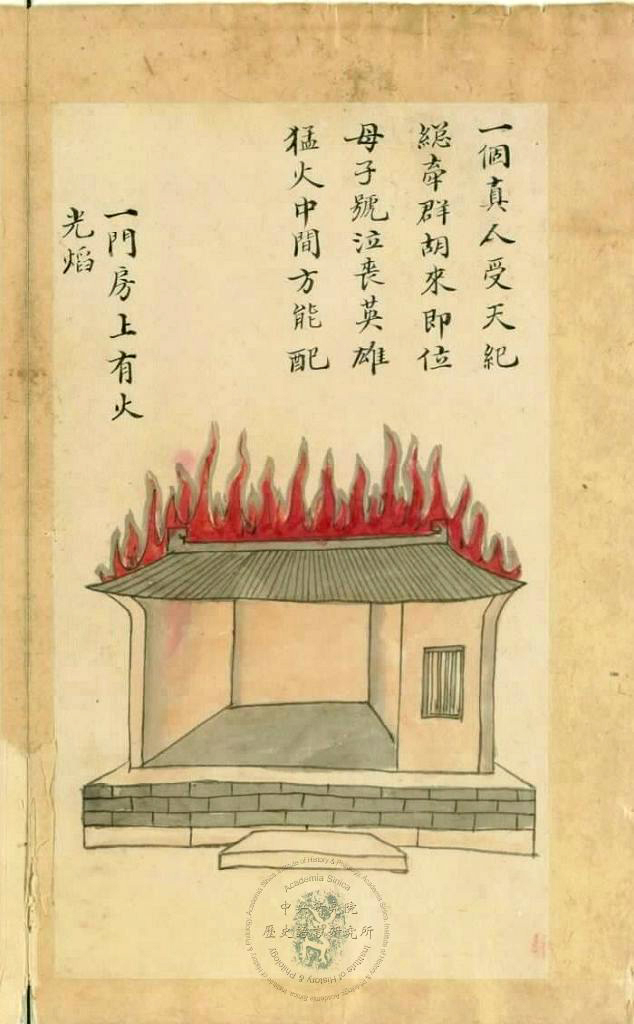 一個真人受天紀
總牽群胡來即位
母子號泣喪英雄
猛火中間方能配
一門房上有火
光熖
Academia Sinica
中央研究院
歷史語言研究所
Institute of History & Philology